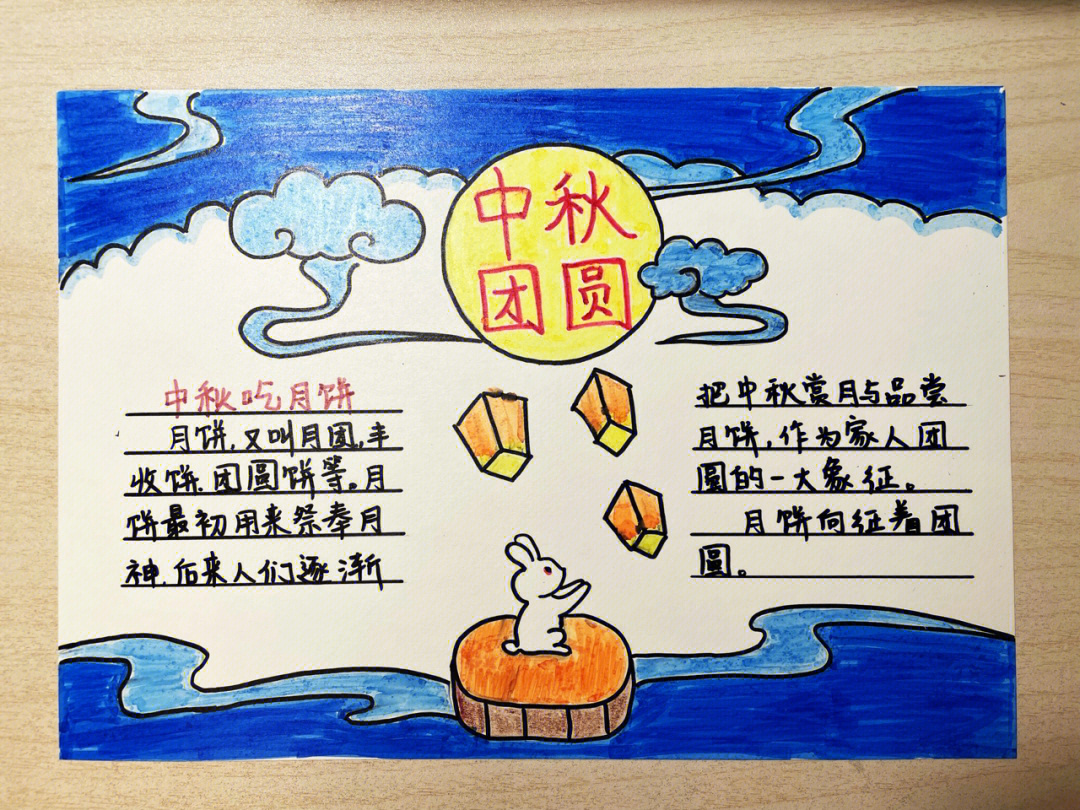 中秋
团圆
中秋吃月饼
月饼，又叫月团，丰
收饼、团圆饼等。月
饼最初用来祭奉月
神，后来人们逐渐
把中秋赏月与品尝
月饼，作为家人团
圆的一大象征。
月饼向征着团
圆。